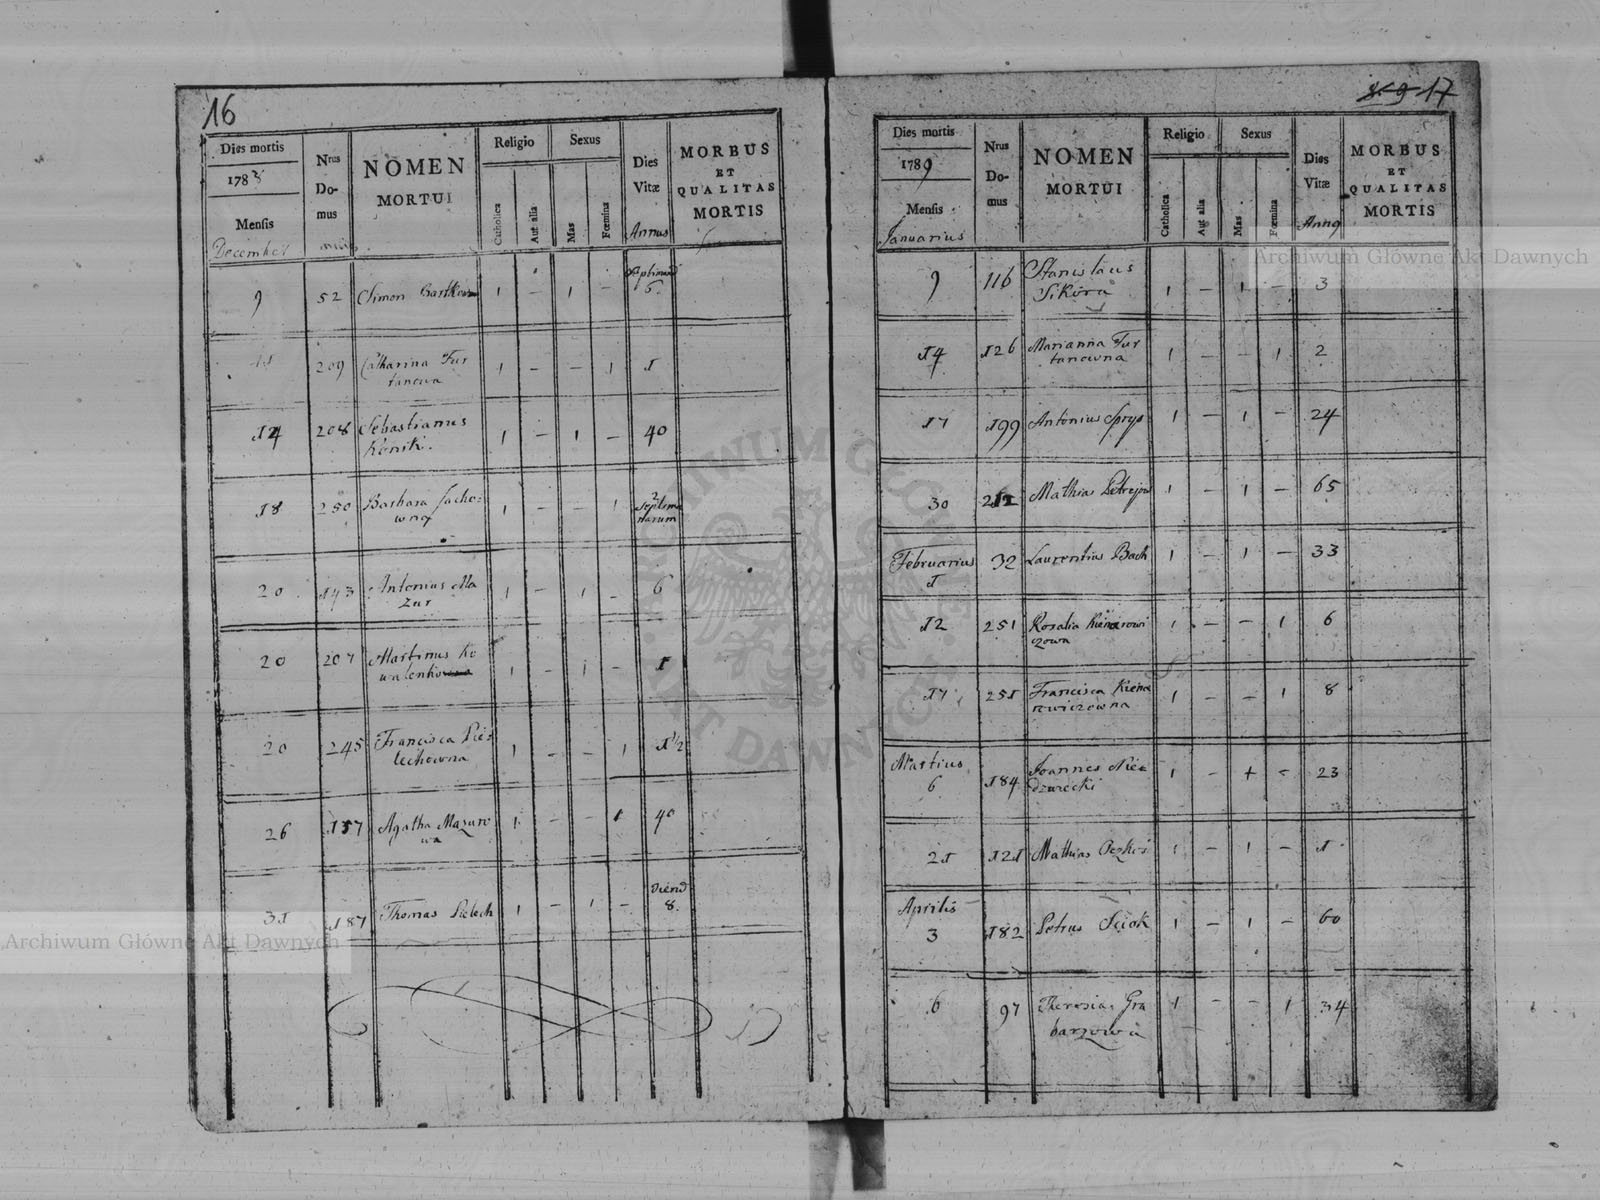 16
Dies mortis Nrus Domus NOMEN MORTUI Religio Sexus Dies Vitæ MORBUS ET QUALITAS MORTIS
178
Mensis Catholica Aut alia Mas Fœmina Annus
December
9 52 Simon 1 - 1 - 6
11 209 Catharina Fur 1 - - 1 1
tanowa
14 208 Sebastianus 1 - 1 - 40
Konski.
18 250 Barbara 1 - - 1 2
wna septima
narum
20 143 Antonius Ma 1 - 1 - 6
zur
20 207 Martinus Ko 1 - 1 - 1
walenko
20 245 Francisca 1 - - 1 1½
lechowna
26 157 Agatha Mazuro 1 - - 1 40
wa
31 187 Thomas Pielech 1 - 1 - 8.
17
Dies mortis Nrus Domus NOMEN MORTUI Religio Sexus Dies Vitæ MORBUS ET QUALITAS MORTIS
1789
Mensis Catholica Aut alia Mas Fœmina
Januarius
9 116 Stanislaus 1 - 1 - 3
Sikora
14 126 Marianna Fur 1 - - 1 2
tanowna
17 199 Antonius Sprys 1 - 1 - 24
30 Mathias 1 - 1 - 65
Februarius 32 Laurentius Bach 1 - 1 - 33
1
12 251 Rosalia 1 - - 1 6
czowa
17 251 Francisca Kiena 1 - - 1 8
rewiczowna
Martius 184 Joannes Nie 1 - + - 23
6 dzwiecki
21 121 Mathias 1 - 1 - 1
Aprilis
3 182 Petrus Sciok 1 - 1 - 60
6 97 Theresia Gra 1 - - 1 34
barzowa
Archiwum Główne Akt Dawnych
Archiwum Główne Akt Dawnych
ARCHIWUM GŁÓWNE AKT DAWNYCH